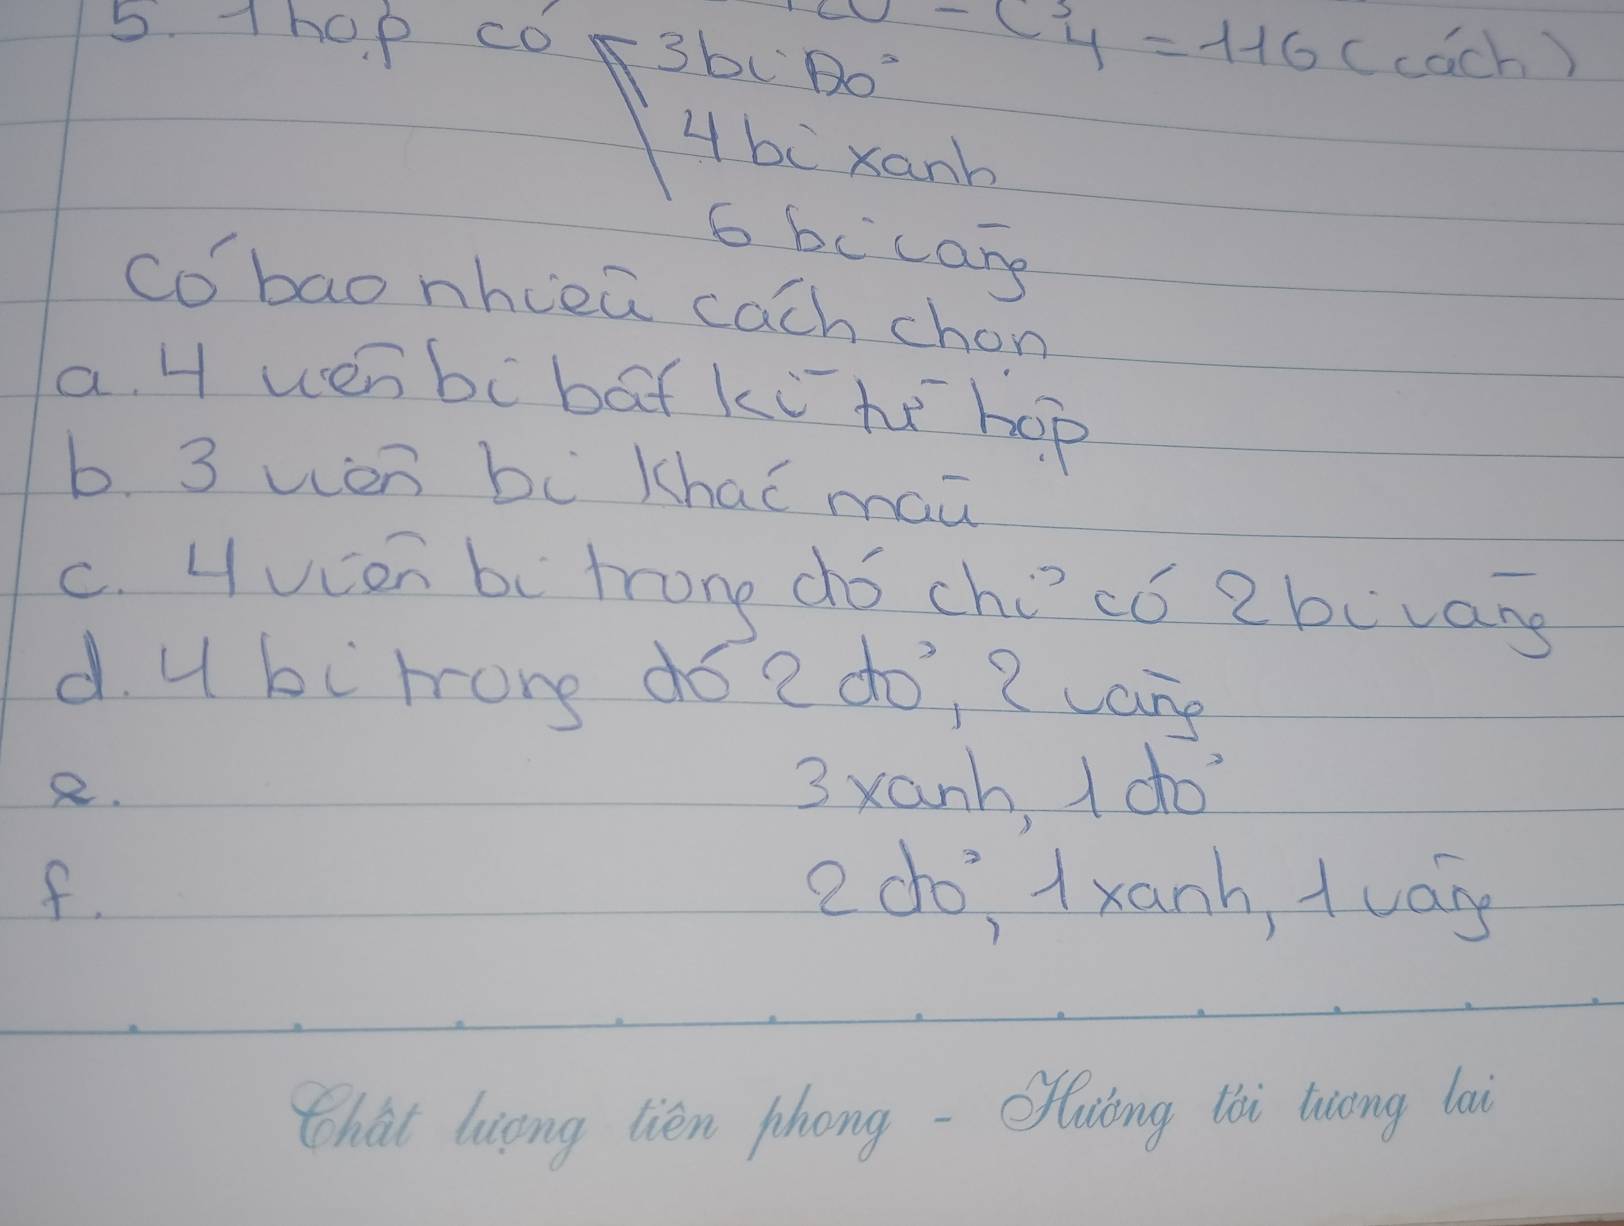 - C³4 = 116 (cách)
5. 1 hộp có 3 bi Đỏ
4 bi xanh
6 bi vàng
Có bao nhiêu cách chọn
a. 4 viên bi bất kì từ hộp
b. 3 viên bi khác màu
c. 4 viên bi trong đó chỉ có 2 bi vàng
d. 4 bi trong đó 2 đỏ, 2 vàng
e. 3 xanh, 1 đỏ
f. 2 đỏ, 1 xanh, 1 vàng
Chất lượng tiên phong - Hướng tới tương lai